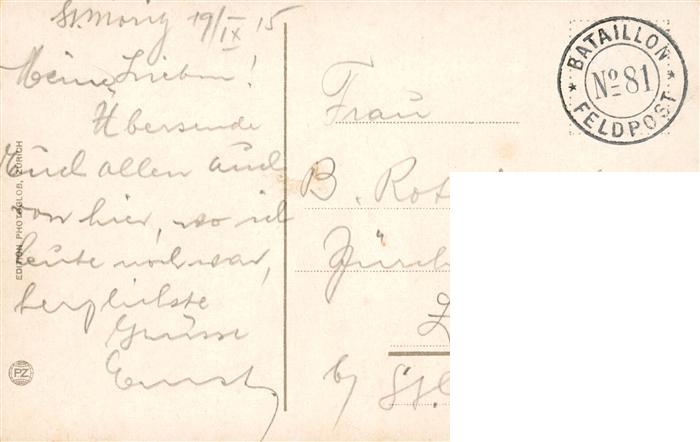 St. Moritz 19/IX 15
Meine Lieben!
Übersende
Euch allen auch
von hier, wo ich
heute noch war,
herzlichste
Grüsse
Ernst.
EDITION PHOTOGLOB, ZÜRICH
PZ
BATAILLON
No 81
FELDPOST
Frau
B. Rot
Zürich